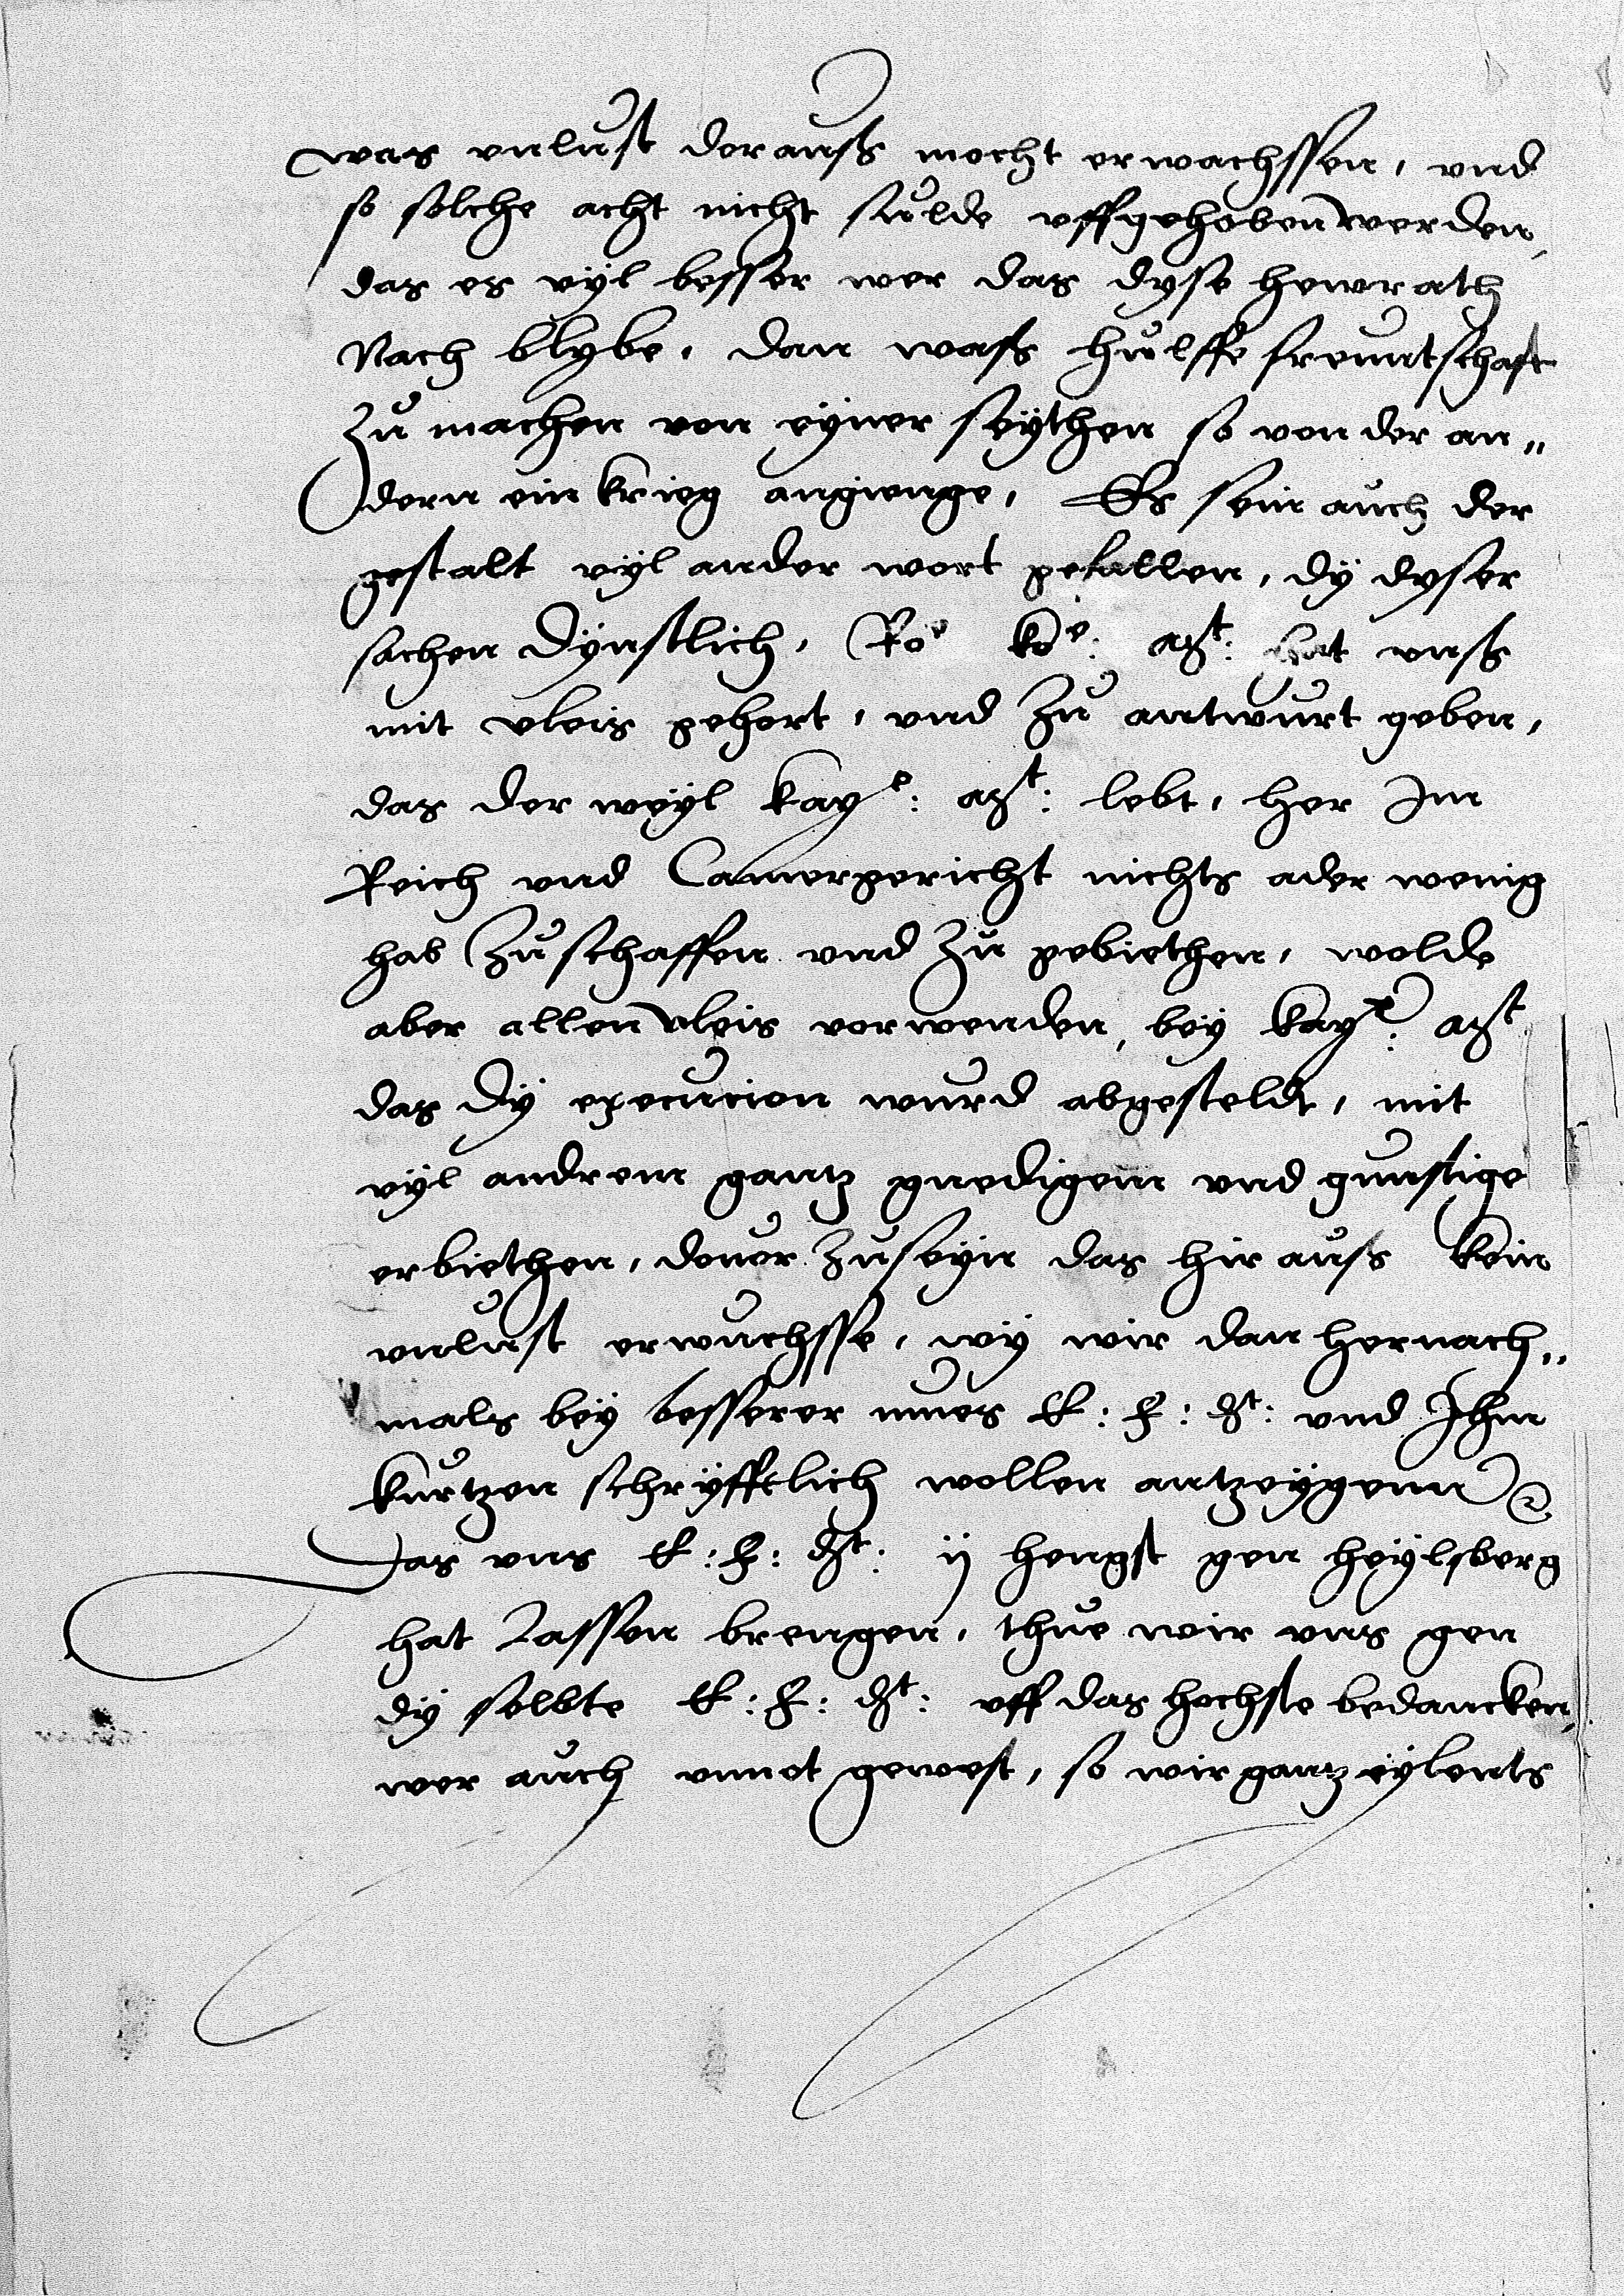 was vnlust dorauß mocht erwachssen, vnd
so solche acht nicht sulde vffgehoben werden,
das es vyl besser wer das dyse hewrath
Nach blybe, dan waß hulffe freuntschaft
zu machen von eyner seythen so von der an„
dern ein krieg angienge, Es sein auch der
gestalt vyl ander wort gefallen, dy dyser
sachen dynstlich, Ro: ko: Mt: hat vnß
mit vleis gehort, vnd zu antwurt geben,
das der weyl kaye: Mt: lebt, her Im
Reich vnd Camergericht nichts ader wenig
hab zuschaffen vnd zu gebiethen, wolde
aber allen vleis vorwenden, bey kaye: Mt
das dy execucion wurd abgesteldt, mit
vyl andrem gantz gnedigem vnd gunstige
erbiethen, douor zuseyn das hir auß kein
vnlust erwuchsse, wy wir dan hernach„
mals bey besserer mues E: F: Dt: vnd Ihm
kurtzen schryfftlich wollen antzeygenn
Das vns E: F: Dt: ij hengst gen heylsberg
hat lassen brengen, thue wir vns gen
dy selbte E: F: Dt: vff das hochste bedancken,
wer auch vnnot gewest, so wir gantz eylents